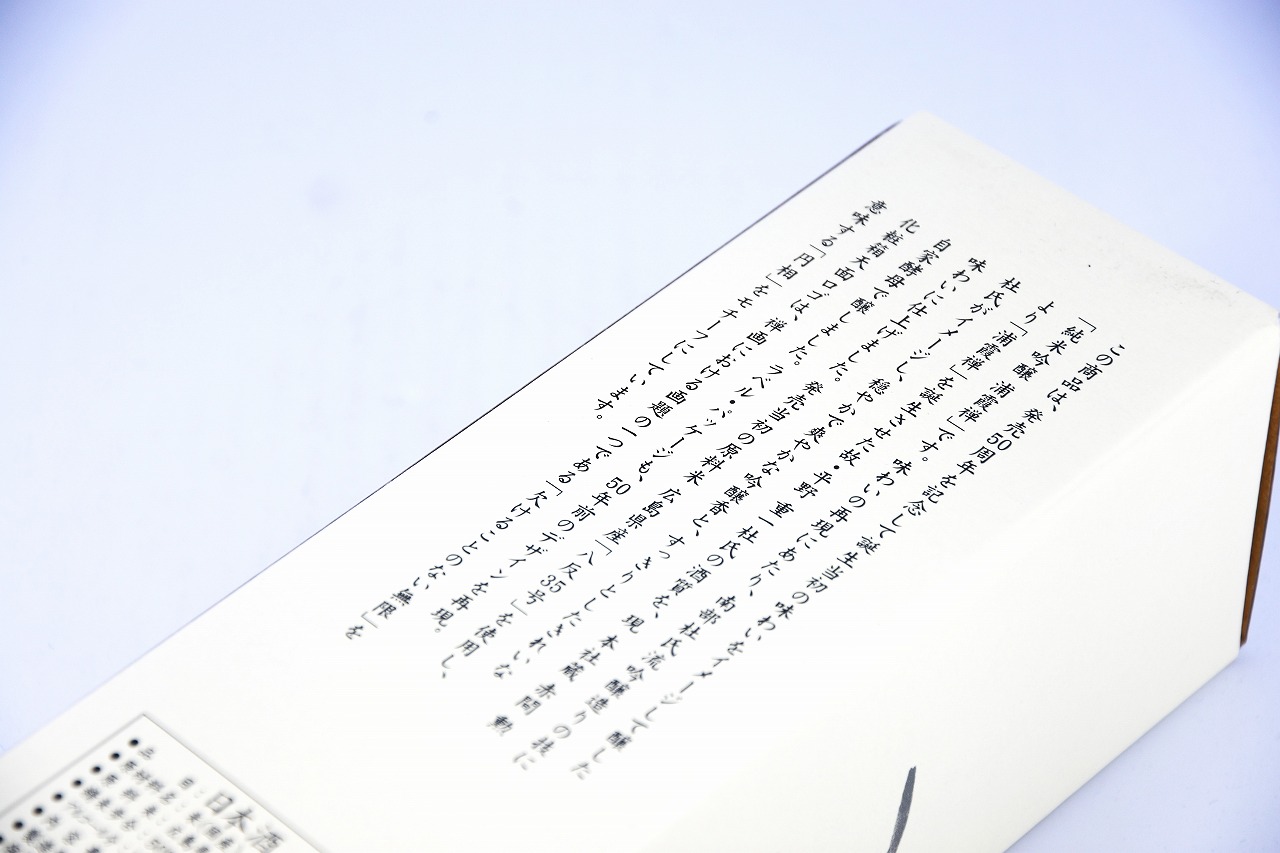 この商品は、発売50周年を記念して誕生当初の味わいをイメージして醸した
「純米吟醸 浦霞禅」です。味わいの再現にあたり、南部杜氏流吟醸造りの技に
より「浦霞禅」を誕生させた故・平野重一杜氏の酒質を、現 本社蔵 赤間 勲
杜氏がイメージし、穏やかで爽やかな吟醸香と、すっきりとしたきれいな
味わいに仕上げました。発売当初の原料米 広島県産「八反35号」を使用し、
自家酵母で醸しました。ラベル・パッケージも、50年前のデザインを再現。
化粧箱天面ロゴは、禅画における画題の一つである「欠けることのない無限」を
意味する「円相」をモチーフにしています。
●品 目：日本酒
●原材料名：米(国産)